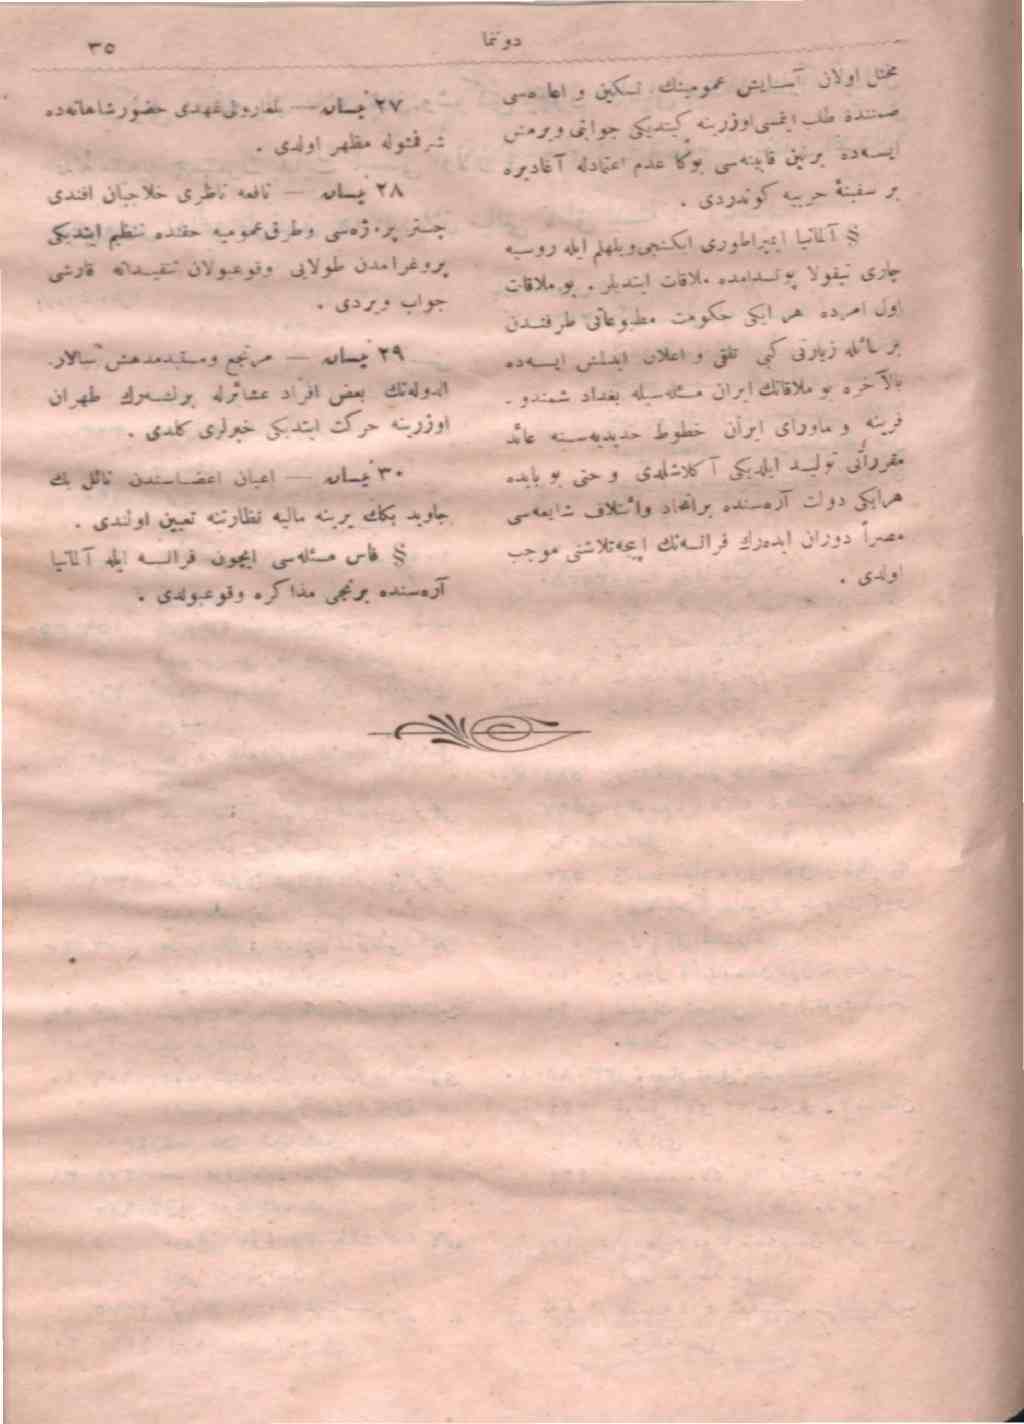 دوننما
٣٥
مختل اولان آسايش عموميه‌نك تسكين و اعاده‌سى
ضمننده طلب ايتمسى اوزرينه كيتديكى جوابنى ويرمش
ايسه‌ده برلين قابينه‌سى بوكا عدم اعتمادله آغاديره
بر سفينۀ حربيه كوندردى .
§ آلمانيا ايمپراطورى ايكنجى ويلهلم ايله روسيه
چارى نيقولا پوتسدامده ملاقات ايتديلر . بو ملاقات
اول امرده هر ايكى حكومت مطبوعاتى طرفندن
بر عائله زيارتى كبى تلقى و اعلان ايدلمش ايسه‌ده
بالآخره بو ملاقاتك ايران مسئله‌سيله بغداد شمندو .
فرينه و ماوراى ايران خطوط حديديه‌سنه عائد
مقرراتى توليد ايلديكى آكلاشلدى و حتى بو بابده
هر ايكى دولت آره‌سنده بر اتحاد وائتلاف شايعه‌سى
مصراً دوران ايده‌رك فرانسه‌نك اپيجه تلاشنى موجب
اولدى .
٢٧ نيسان — بلغار ولى عهدى حضور شاهانه‌ده
شرفمثوله مظهر اولدى .
٢٨ نيسان — نافعه ناظرى خلاجيان افندى
چستر پروژه‌سى وطرق عموميه حقنده تنظيم ايتديكى
پروغرامدن طولايى وقوعبولان تنقيداته قارشى
جواب ويردى .
٢٩ نيسان — مرتجع ومستبد مدهش سالار .
الدوله‌نك بعض افراد عشائرله برلشه‌رك طهران
اوزرينه حركت ايتديكى خبرلرى كلدى .
٣٠ نيسان — اعيان اعضاسندن نائل بك
جاويد بكك يرينه ماليه نظارتنه تعيين اولندى .
§ فاس مسئله‌سى ايچون فرانسه ايله آلمانيا
آره‌سنده برنجى مذاكره وقوعبولدى .